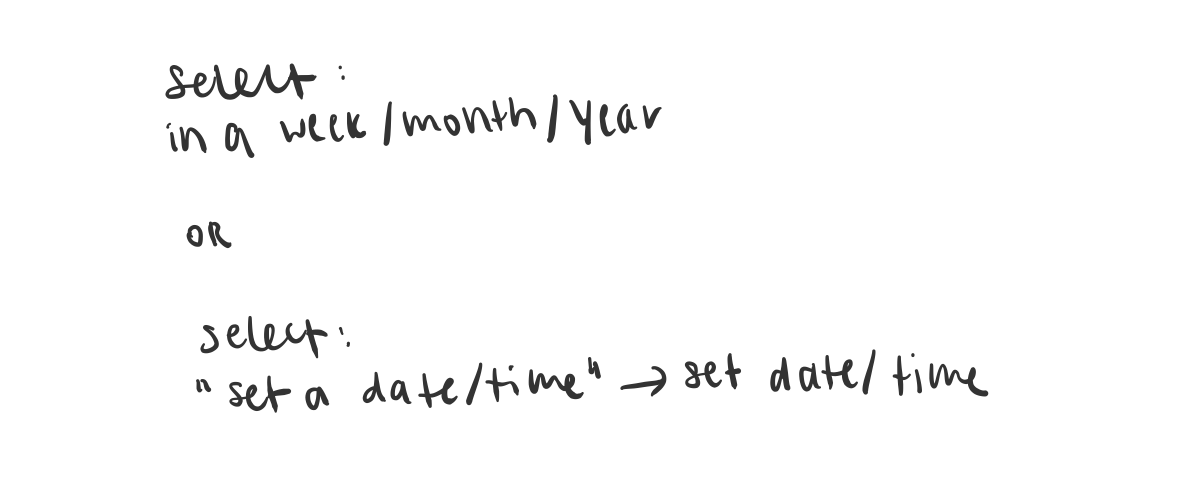 select:
in a week/month/year
OR
select:
"set a date/time" → set date/time